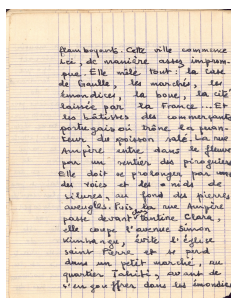 flamboyants. Cette ville commence
ici, de manière assez impromp-
tue. Elle mêle tout : la case
de Gaulle, les marchés, les
immondices, la boue, la cité
laissée par la France... Et
les bâtisses des commerçants
portugais où trône la puan-
teur du poisson salé. La rue
Ampère entre dans le fleuve
par un sentier des piroguiers
Elle doit se prolonger par
des voies et des nids de
silures, au fond des pierres
aveugles. Puis la rue Ampère
passe devant chez Tantine Clara,
elle coupe l'avenue Simon
Kimbangu, évite l'église
Saint Pierre et se perd
dans un petit marché, au
quartier Tahiti, avant de
s'engouffrer dans les immondices